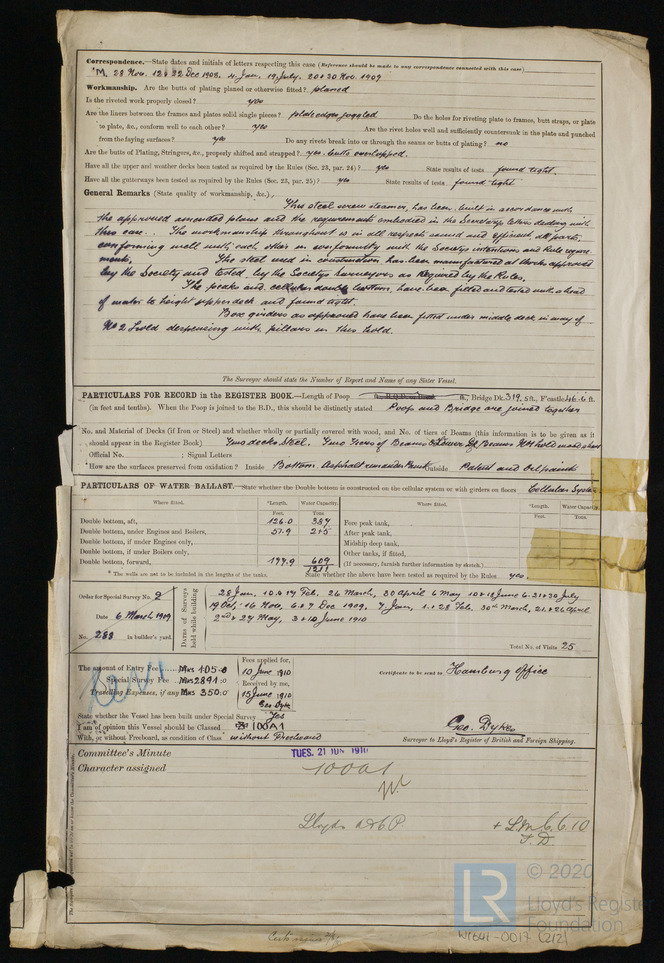 Correspondence.—State dates and initials of letters respecting this case (Reference should be made to any correspondence connected with this case)
"M, 28 Nov. 12 & 22 Dec 1908, 4 Jan, 19 July, 20 & 30 Nov. 1909
Workmanship. Are the butts of plating planed or otherwise fitted? planed
Is the riveted work properly closed? yes
Are the liners between the frames and plates solid single pieces? plate edges joggled Do the holes for riveting plate to frames, butt straps, or plate
to plate, &c., conform well to each other? yes Are the rivet holes well and sufficiently countersunk in the plate and punched
from the faying surfaces? yes Do any rivets break into or through the seams or butts of plating? no
Are the butts of Plating, Stringers, &c., properly shifted and strapped? yes, butts overlapped.
Have all the upper and weather decks been tested as required by the Rules (Sec. 23, par. 24)? yes State results of tests found tight.
Have all the gutterways been tested as required by the Rules (Sec. 23, par. 25)? yes State results of tests found tight
General Remarks (State quality of workmanship, &c.),
This steel screw steamer, has been built in accordance with
the approved amended plans and the requirements embodied in the Secretarys letters dealing with
this case. The workmanship throughout is in all respects sound and efficient, all parts
conforming well with each other in conformity with the Societys intentions and Rule require-
ments. The steel used in construction has been manufactured at Works approved
by the Society and tested by the Societys Surveyors as required by the Rules.
The peaks and cellular double bottom, have been fitted and tested with a head
of water to height upper deck and found tight.
Box girders as approved have been fitted under middle deck in way of
No 2 hold dispensing with pillars in this hold.
The Surveyor should state the Number of Report and Name of any Sister Vessel.
PARTICULARS FOR RECORD in the REGISTER BOOK.—Length of Poop ft., Bridge Dk. 319.5 ft., F'castle 46.6 ft.
(in feet and tenths). When the Poop is joined to the B.D., this should be distinctly stated Poop and Bridge are joined together
No. and Material of Decks (if Iron or Steel) and whether wholly or partially covered with wood, and No. of tiers of Beams (this information is to be given as it
should appear in the Register Book) Two decks Steel. Two Tiers of Beams
Official No. ; Signal Letters
How are the surfaces preserved from oxidation? Inside Bottom. Asphalt remainder Paint Outside Patent and Oil paints
PARTICULARS OF WATER BALLAST.—State whether the Double bottom is constructed on the cellular system or with girders on floors Cellular System
Where fitted. *Length. Water Capacity. Where fitted. *Length. Water Capacity.
Feet. Tons. Feet.
Double bottom, aft, 126.0 357 Fore peak tank,
Double bottom, under Engines and Boilers, 57.9 245 After peak tank,
Double bottom, if under Engines only, Midship deep tank,
Double bottom, if under Boilers only, Other tanks, if fitted,
Double bottom, forward, 177.9 609 (If necessary, furnish further information by sketch.)
1211
* The wells are not to be included in the lengths of the tanks. State whether the above have been tested as required by the Rules yes.
Order for Special Survey No. 2
Date 6 March 1909
No. 283 in builder's yard.
Dates of Surveys held while building
28 Jan, 10 & 17 Feb. 26 March, 30 April 6 May 10 & 18 June 6. 21 & 30 July
19 Oct. 16 Nov. 6 & 7 Dec 1909, 7 Jan, 1. & 28 Feb. 30th March, 21 & 26 April
2nd & 27 May, 3 & 10 June 1910
Total No. of Visits 25
The amount of Entry Fee Mks 105.0
Special Survey Fee Mks 2891.0
Travelling Expenses, if any Mks 350.0
Fees applied for,
10 June 1910
Received by me,
15 June 1910
Geo Dykes
Certificate to be sent to Hamburg Office
State whether the Vessel has been built under Special Survey Yes
I am of opinion this Vessel should be Classed 100A1
With, or without Freeboard, as condition of Class without Freeboard
Geo. Dykes
Surveyor to Lloyd's Register of British and Foreign Shipping.
Committee's Minute TUES. 21 JUN 1910
Character assigned 100A1
Lloyds A & C.P. + L.M.C. 6.10
F.D.
© 2020
LR
Lloyd's Register
Foundation
W1641-0017 (2/2)